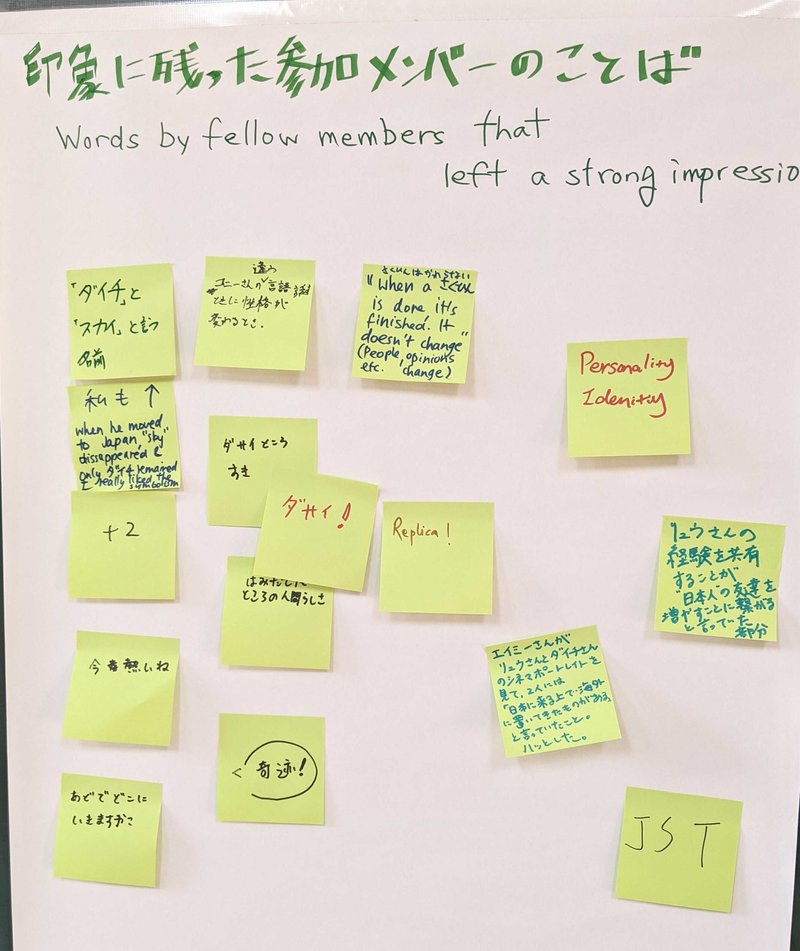 印象に残った参加メンバーのことば
Words by fellow members that
left a strong impressio
「ダイチ」と
「スカイ」と言う
名前
私も ↑
when he moved
to Japan, "sky"
dissappeared &
only ダイチ remained
I really liked the
symbolism
+2
今春熱いね
あどでどこに
いきますか
違う
エニーさんが言語話す
ときに性格が
変わるとき.
ダサイところ
すき
ダサイ!
はみだした
ところの人間らしさ
< 奇迹!
さくひんはかわらない
"when a さくひん
is done it's
finished. It
doesn't change"
(People, opinions
etc. change)
Replica!
Personality
Idenity
リュウさんの
経験を共有
することが
"日本人"の友達を
増やすことに繋がる
と言っていた
部分
エイミーさんが
リュウさんとダイチさん
のシネマポートレイトを
見て、2人には
「日本に来る上で海外
に置いてきたものがある」
と言っていたこと。
ハッとした。
JST